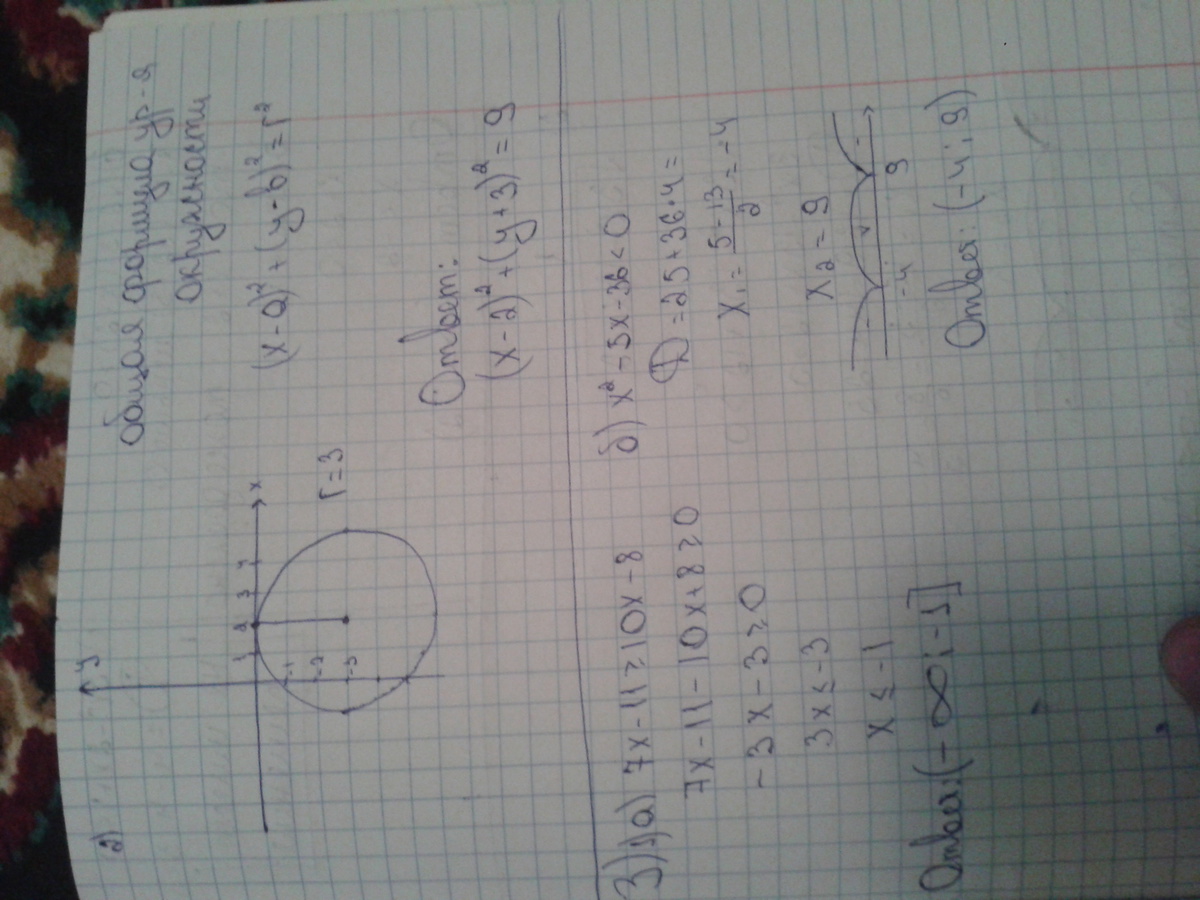 2)
y
1 2 3 4 x
-1
-2
-3
r=3
общая формула ур-я
окружности
(x-a)²+(y-b)²=r²
Ответ:
(x-2)²+(y+3)²=9
3) 1) а) 7x-11≥10x-8
7x-11-10x+8≥0
-3x-3≥0
3x≤-3
x≤-1
Ответ:(-∞;-1]
б) x²-5x-36<0
D=25+36·4=
x₁=(5-13)/2=-4
x₂=9
-4 9
Ответ: (-4;9)